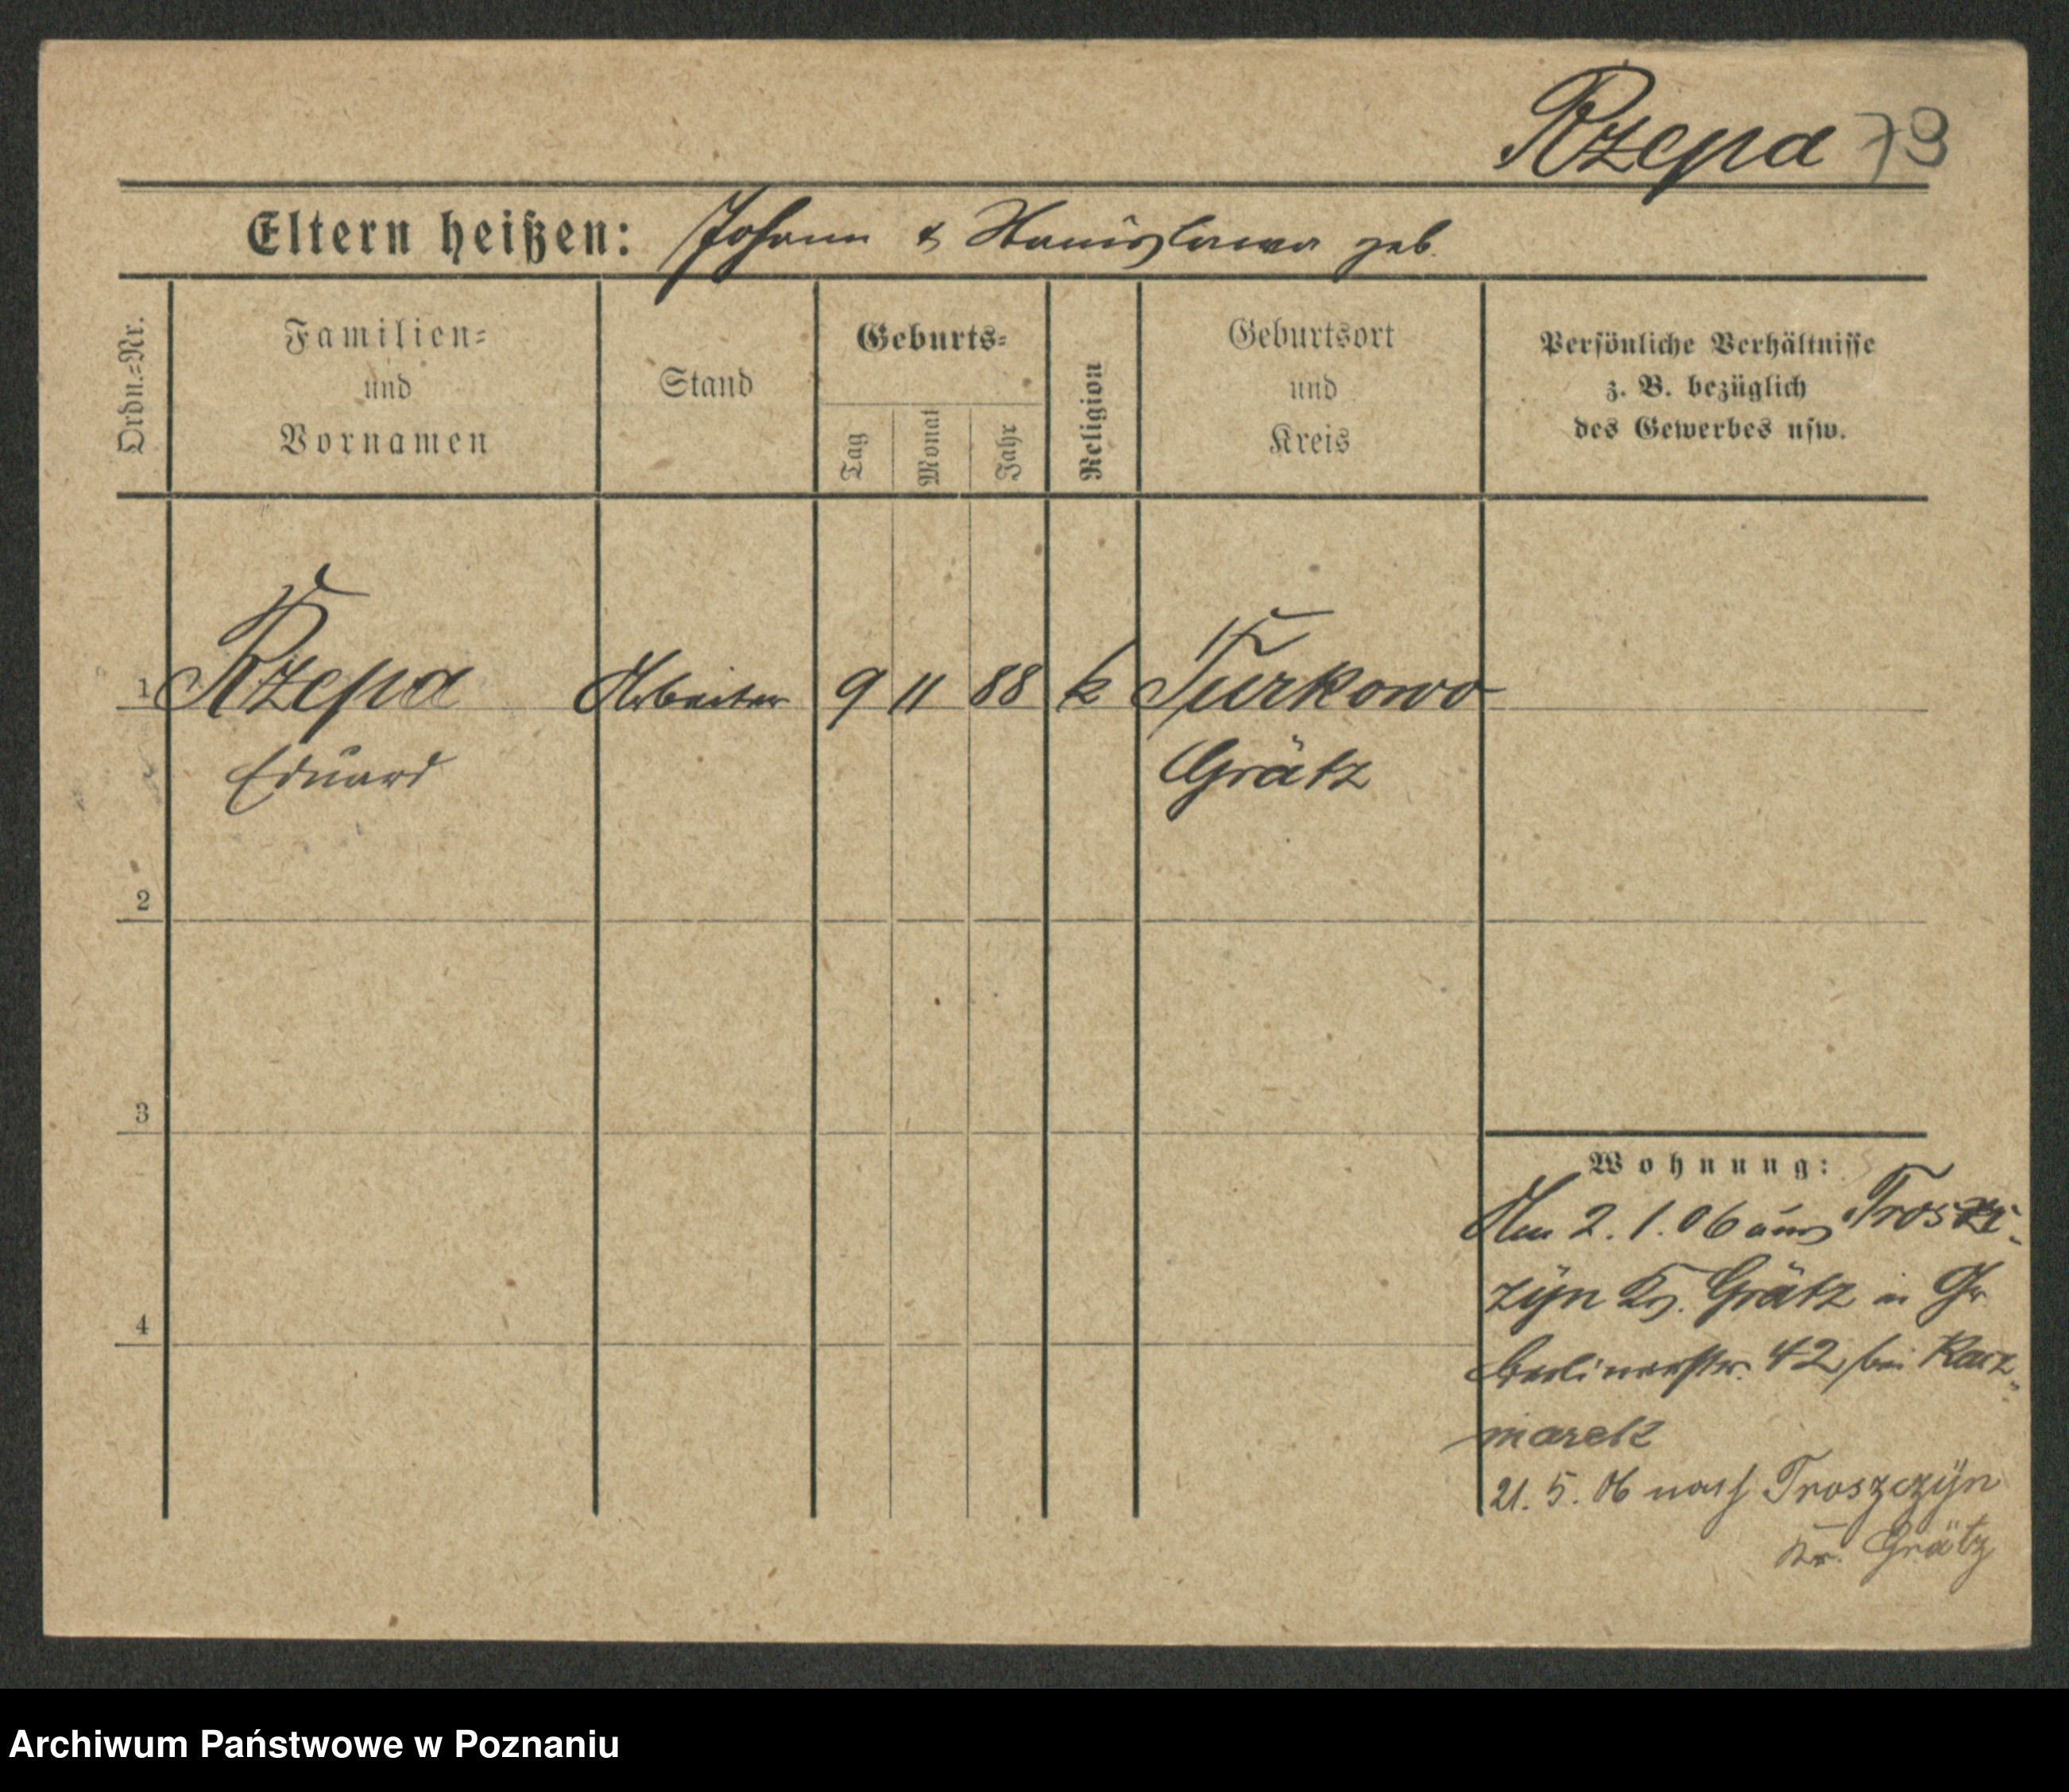 Rzepa 73
Eltern heißen: Johann & Stanislawa geb.
Ordn.-Nr.
Familien-
und
Vornamen
Stand
Geburts-
Tag
Monat
Jahr
Religion
Geburtsort
und
Kreis
Persönliche Verhältnisse
z. B. bezüglich
des Gewerbes usw.
1 Rzepa Arbeiter 9 11 88 k Turkowo
Eduard Grätz
2
3
4
Wohnung:
Am 2.1.06 aus Trosz-
zÿn Kr. Grätz in Gr
Berlinerstr. 42 bei Kacz-
marek
21. 5. 06 nach Troszczÿn
Kr. Grätz
Archiwum Państwowe w Poznaniu